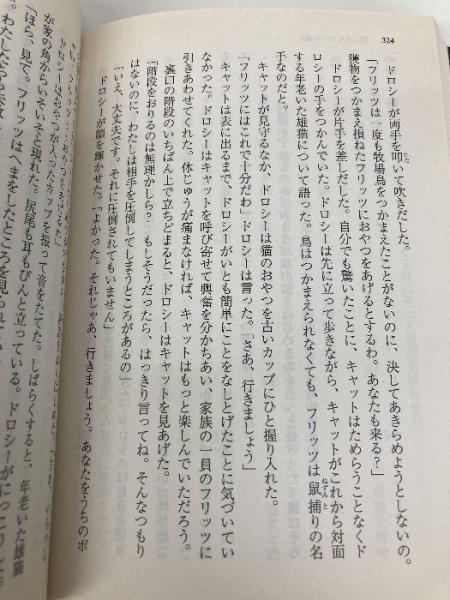 324
ドロシーが両手を叩いて吹きだした。
「フリッツは一度も牧場鳥をつかまえたことがないのに、決してあきらめようとしないの。
獲物をつかまえ損ねたフリッツにおやつをあげるとするわ。あなたも来る?」
ドロシーが片手を差しだした。自分でも驚いたことに、キャットはためらうことなくド
ロシーの手をつかんでいた。ドロシーは先に立って歩きながら、キャットがこれから対面
する年老いた雄猫について語った。鳥はつかまえられなくても、フリッツは鼠捕りの名
手なのだと。
キャットが見守るなか、ドロシーは猫のおやつを古いカップにひと握り入れた。
「フリッツにはこれで十分だわ」ドロシーは言った。「さあ、行きましょう」
キャットは表に出るまで、ドロシーがいとも簡単にことをなしとげたことに気づいてい
なかった。ドロシーはキャットを呼び寄せて興奮を分かちあい、家族の一員のフリッツに
引きあわせてくれた。体じゅうが痛まなければ、キャットはもっと楽しんでいただろう。
裏口の階段のいちばん上で立ちどまると、ドロシーはキャットを見あげた。
「階段をおりるのは無理かしら? もしそうだったら、はっきり言ってね。そんなつもり
はないのに、わたしは相手を圧倒してしまうところがあるの」
「いえ、大丈夫です。それに圧倒されてもいません」
ドロシーが顔を輝かせた。「よかった。それじゃあ、行きましょう。あなたをうちのボ
カップを振って音をたてた。しばらくすると、年老いた雄猫
が家の角からいそいそと現れた。尻尾も耳もぴんと立っている。ドロシーがにっこりした。
「ほら、見て。フリッツはへまをしたところを見られて